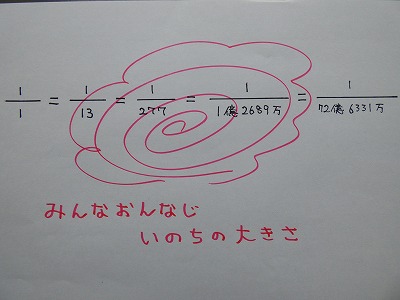 1/1 = 1/13 = 1/277 = 1/1億2689万 = 1/72億6331万
みんなおんなじ
いのちの大きさ